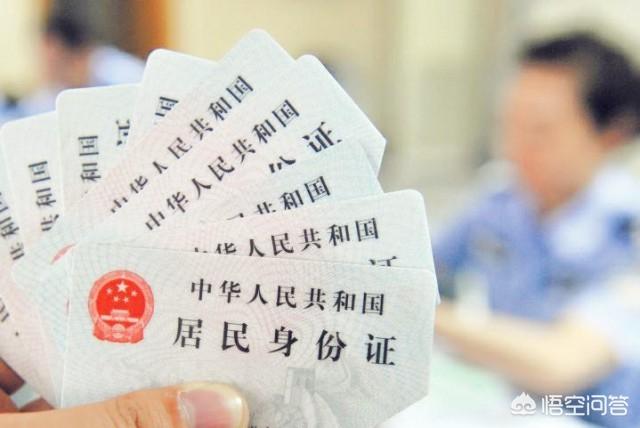 和国
和国
国
证
中华人民共和国
中华人民共和国
证
份证
中华人民共和国
证
中华人民共和国
居民身份证
悟空问答